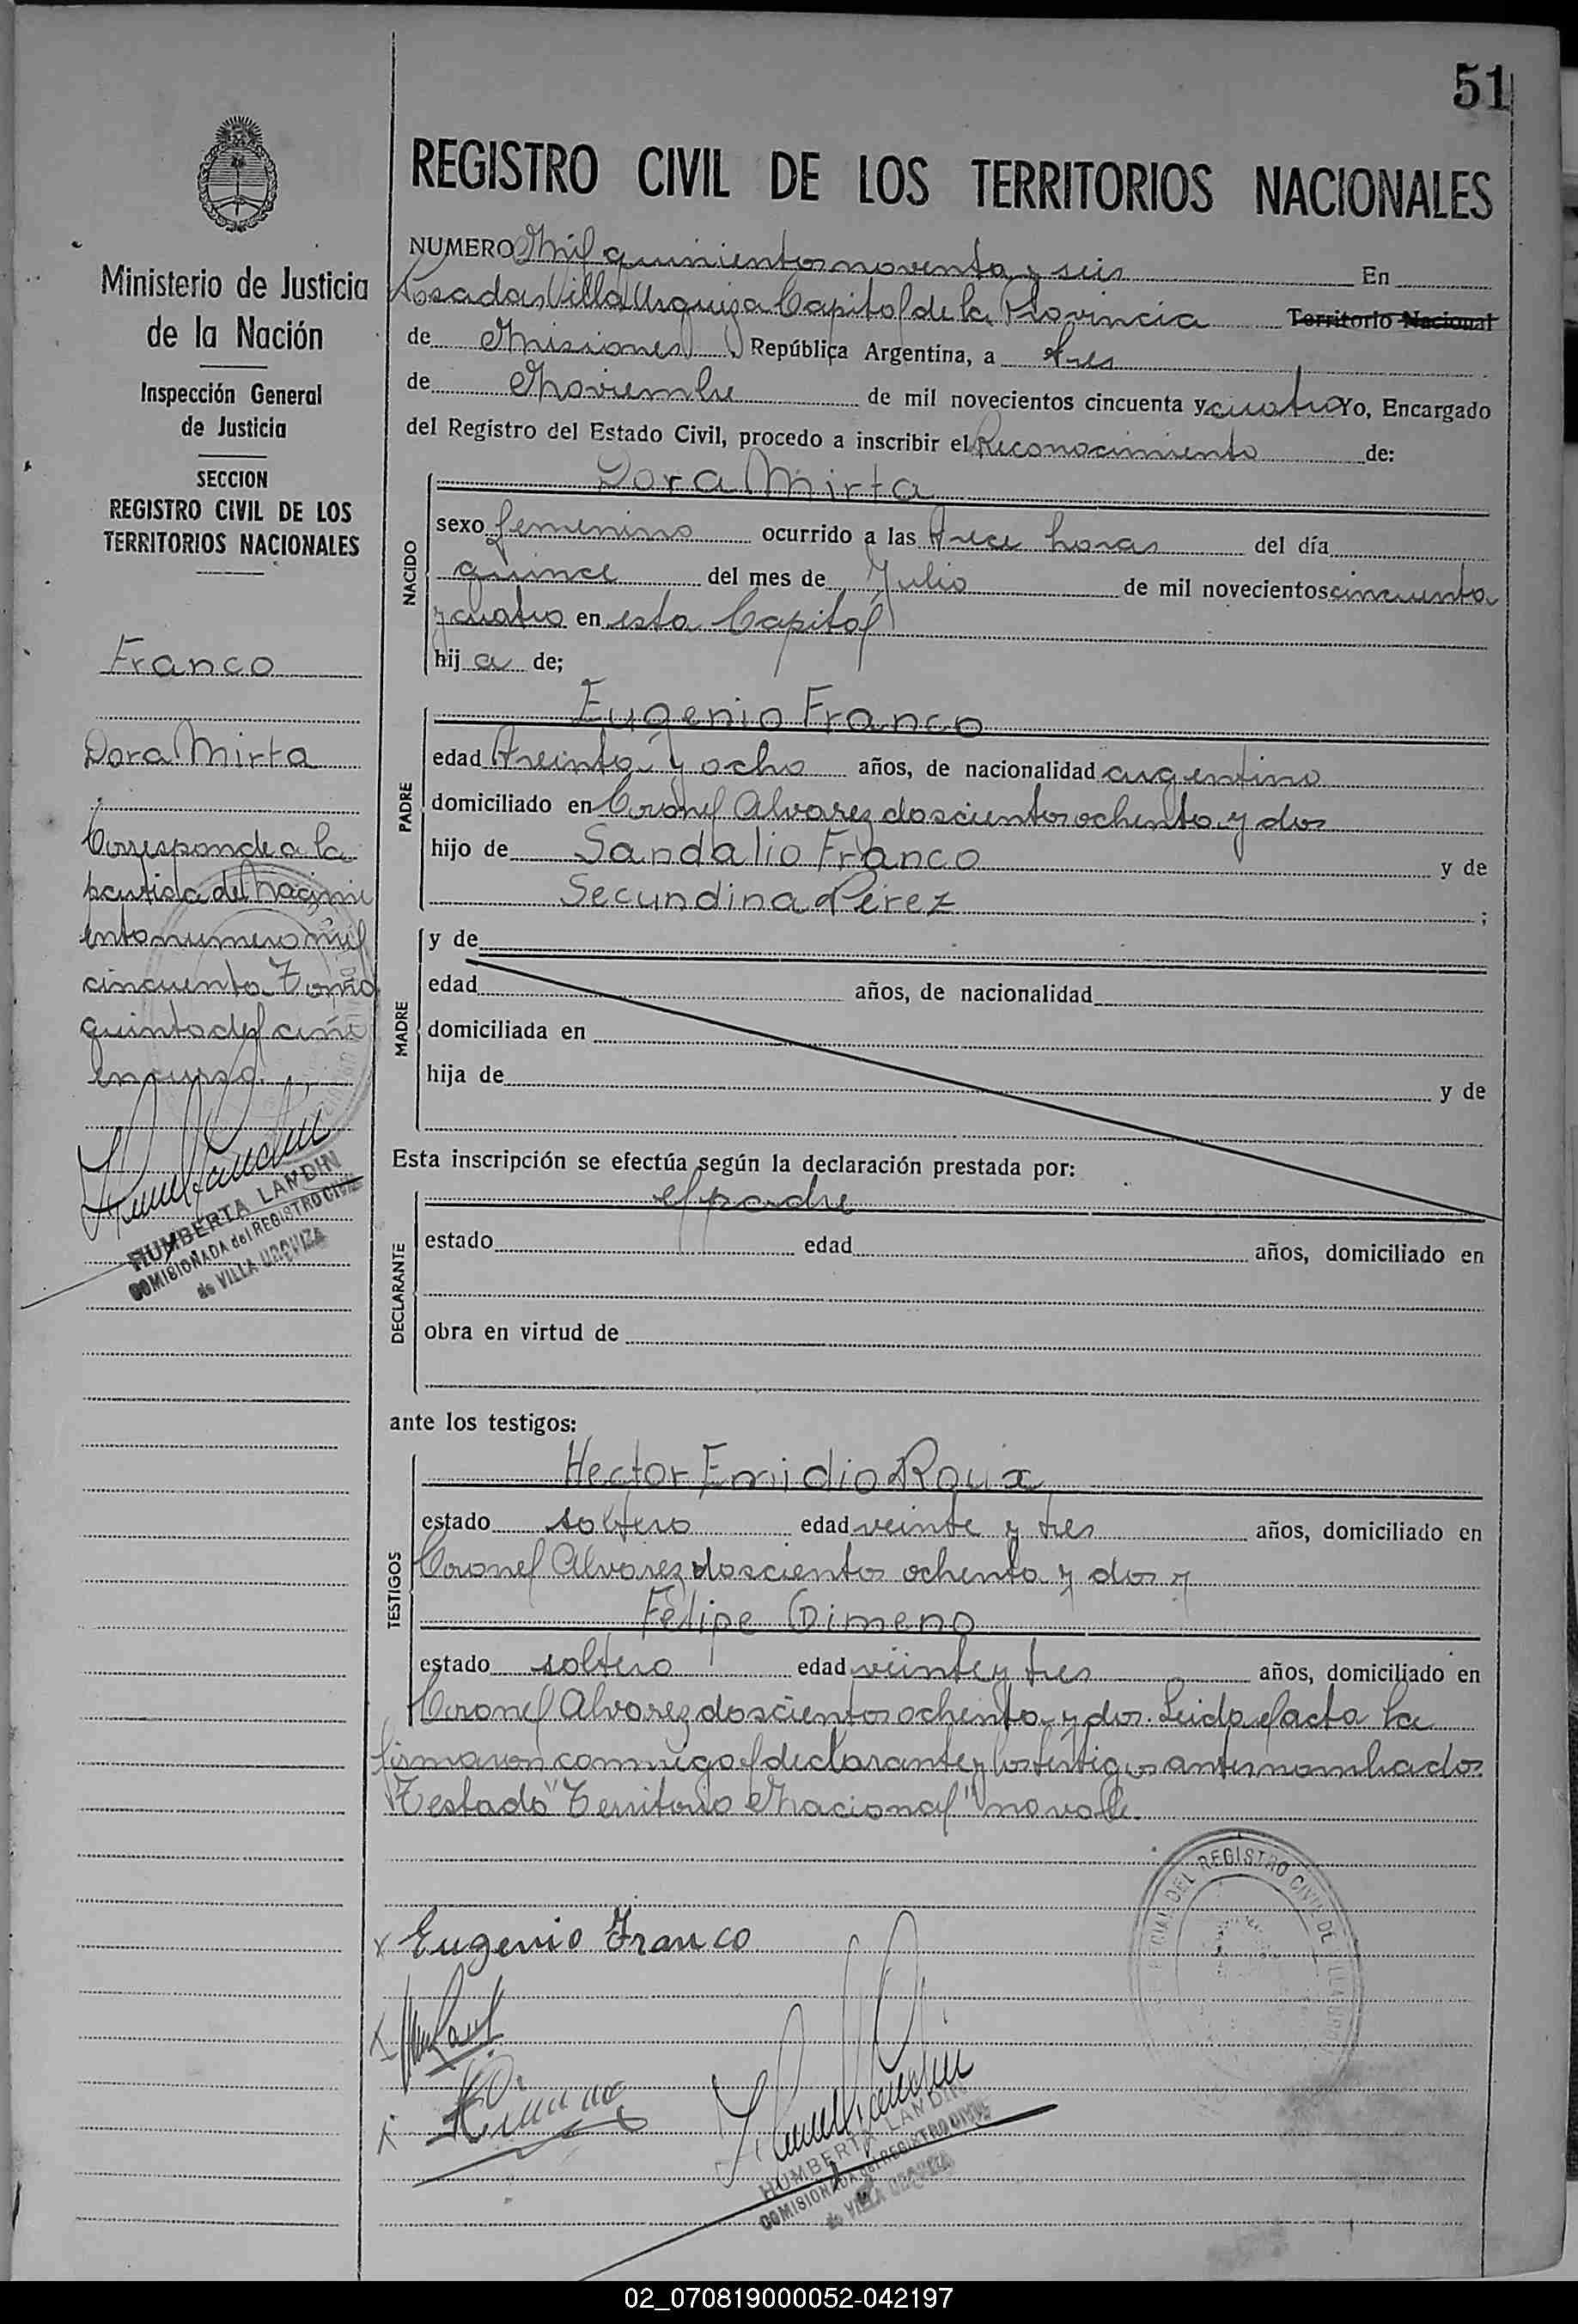 51
REGISTRO CIVIL DE LOS TERRITORIOS NACIONALES
Ministerio de Justicia
de la Nación
Inspección General
de Justicia
SECCION
REGISTRO CIVIL DE LOS
TERRITORIOS NACIONALES
Franco
Dora Mirta
Corresponde a la
partida de Nacimi
ento numero mil
cincuenta Tomo
quinto del año
en curso.
HUMBERTA LANDIN
COMISIONADA del REGISTRO CIVIL
de VILLA URQUIZA
NUMERO Mil quinientos noventa y seis En
Posadas Villa Urquiza Capital de la Provincia Territorio Nacional
de Misiones, República Argentina, a tres
de Noviembre de mil novecientos cincuenta y cuatro Yo, Encargado
del Registro del Estado Civil, procedo a inscribir el Reconocimiento de:
NACIDO
Dora Mirta
sexo femenino ocurrido a las trece horas del día
quince del mes de Julio de mil novecientos cincuenta
y cuatro en esta Capital
hij a de;
PADRE
Eugenio Franco
edad treinta y ocho años, de nacionalidad argentino
domiciliado en Coronel Alvarez doscientos ochenta y dos
hijo de Sandalio Franco y de
Secundina Perez ;
MADRE
y de
edad años, de nacionalidad
domiciliada en
hija de y de
Esta inscripción se efectúa según la declaración prestada por:
DECLARANTE
el padre
estado edad años, domiciliado en
obra en virtud de
ante los testigos:
TESTIGOS
Hector Emidio Roux
estado soltero edad veinte y tres años, domiciliado en
Coronel Alvarez doscientos ochenta y dos y
Felipe Gimeno
estado soltero edad veinte y tres años, domiciliado en
Coronel Alvarez doscientos ochenta y dos. Leida el acta la
firmaron conmigo el declarante y los testigos antes nombrados
Testado "Territorio Nacional" no vale.
x Eugenio Franco
REGISTRO CIVIL DE
HUMBERTA LANDIN
COMISIONADA del REGISTRO CIVIL
de VILLA URQUIZA
02_070819000052-042197